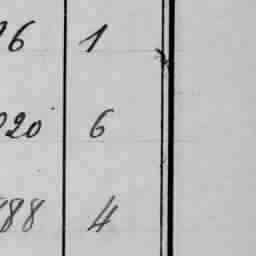 6 1
20 6
88 4